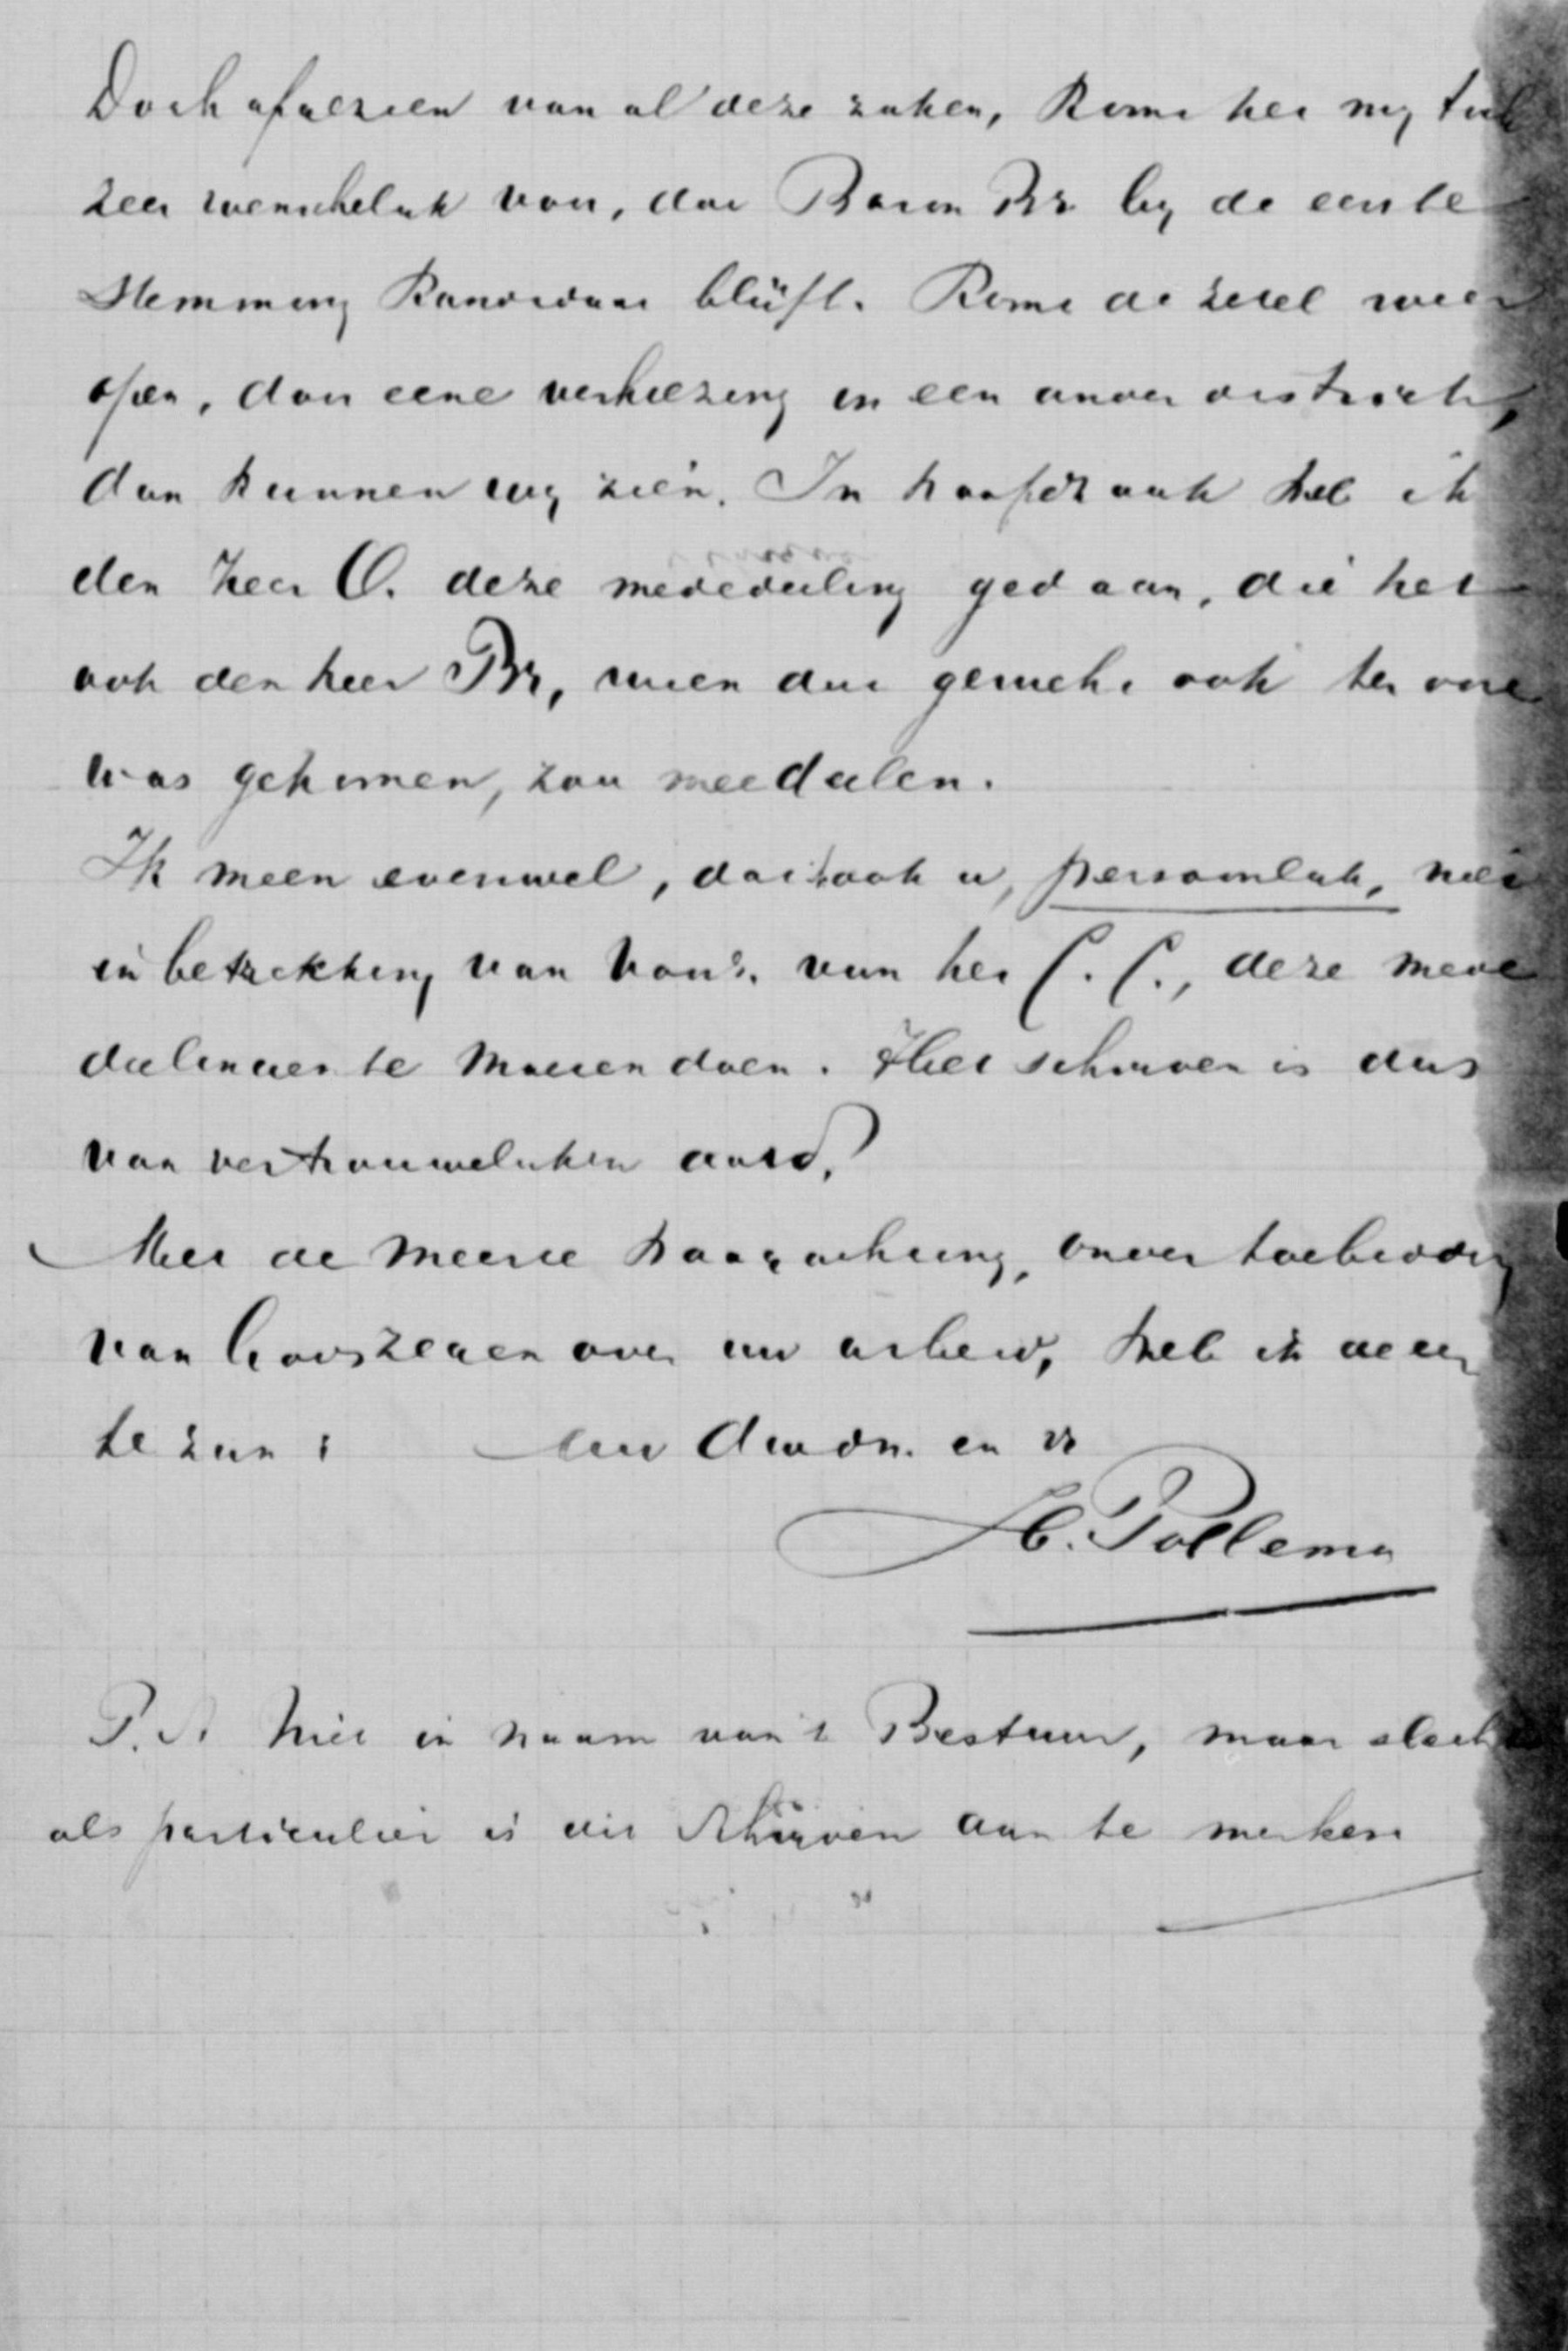 Doch afgezien van al deze zaken, komt het mij toch
zeer wenschelijk voor, dat Baron Br. bij de eerste
Stemming Kandidaat blijft. Komt de zetel weer
open, door eene verkiezing in een ander district,
dan kunnen wij zien. In hoofdzaak heb ik
den heer O. deze mededeeling gedaan, die het
ook den heer Br, wien dat gerucht ook ter oore
was gekomen, zou meedeelen.
Ik meen evenwel, dat ook u, persoonlijk, niet
in betrekking van Voorz. van het C. C., deze mede
deelingen te moeten doen. Het schrijven is dus
van vertrouwelijken aard.
Met de meeste hoogachting, onder toebidding
van Gods zegen over uw arbeid, heb ik de eer
te zijn: Uw dwdn. en br
H. Pollema
P.S. Niet in naam van 't Bestuur, maar slechts
als particulier is dit schrijven aan te merken